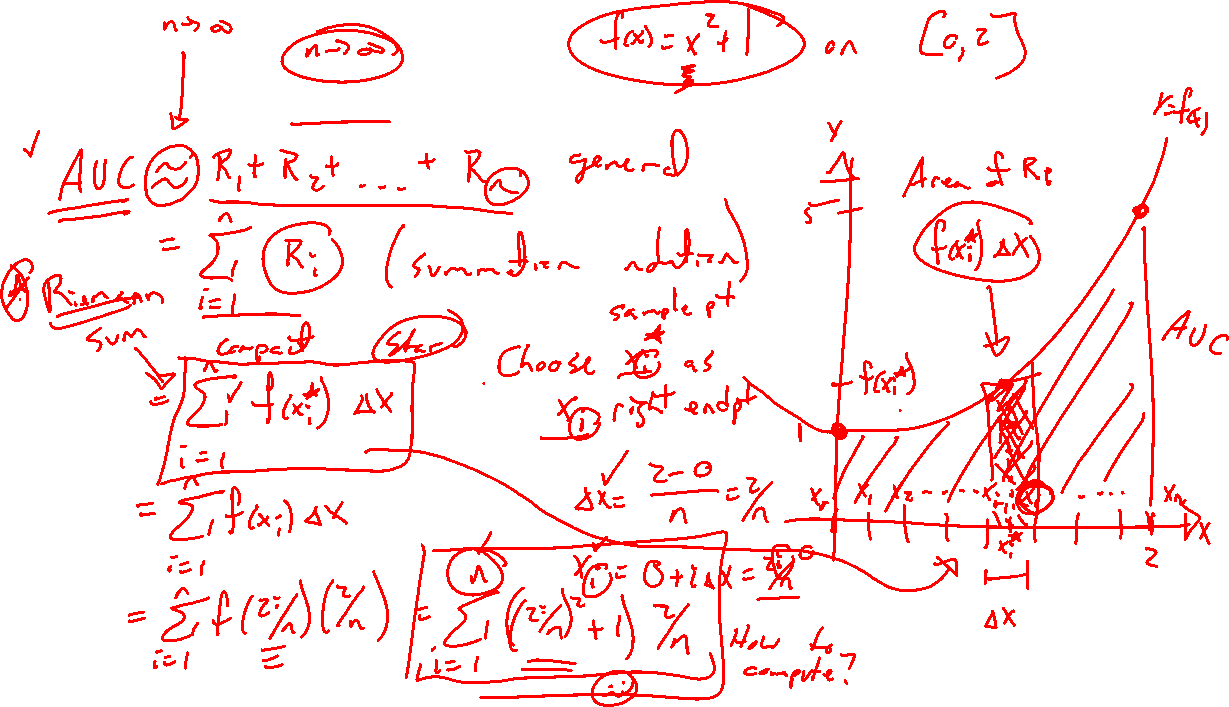 n→∞
n→∞
f(x) = x² + 1 on [0, 2]
✓ AUC ≈ R₁ + R₂ + ... + Rₙ general
= ∑ᵢ₌₁ⁿ Rᵢ (summation notation)
Riemann sum
compact
star
= ∑ᵢ₌₁ⁿ f(xᵢ*) Δx
sample pt
Choose xᵢ* as
xᵢ right endpt
= ∑ᵢ₌₁ⁿ f(xᵢ) Δx
Δx = (2-0)/n = 2/n
xᵢ = 0 + iΔx = 2i/n
= ∑ᵢ₌₁ⁿ f(2i/n)(2/n) = ∑ᵢ₌₁ⁿ ((2i/n)² + 1) 2/n
n
How to
compute?
y
y=f(x)
Area of Rᵢ
f(xᵢ*) Δx
5
AUC
f(xᵢ*)
1
x₀ x₁ x₂ ...... xᵢ .... xₙ
xᵢ*
2
x
Δx